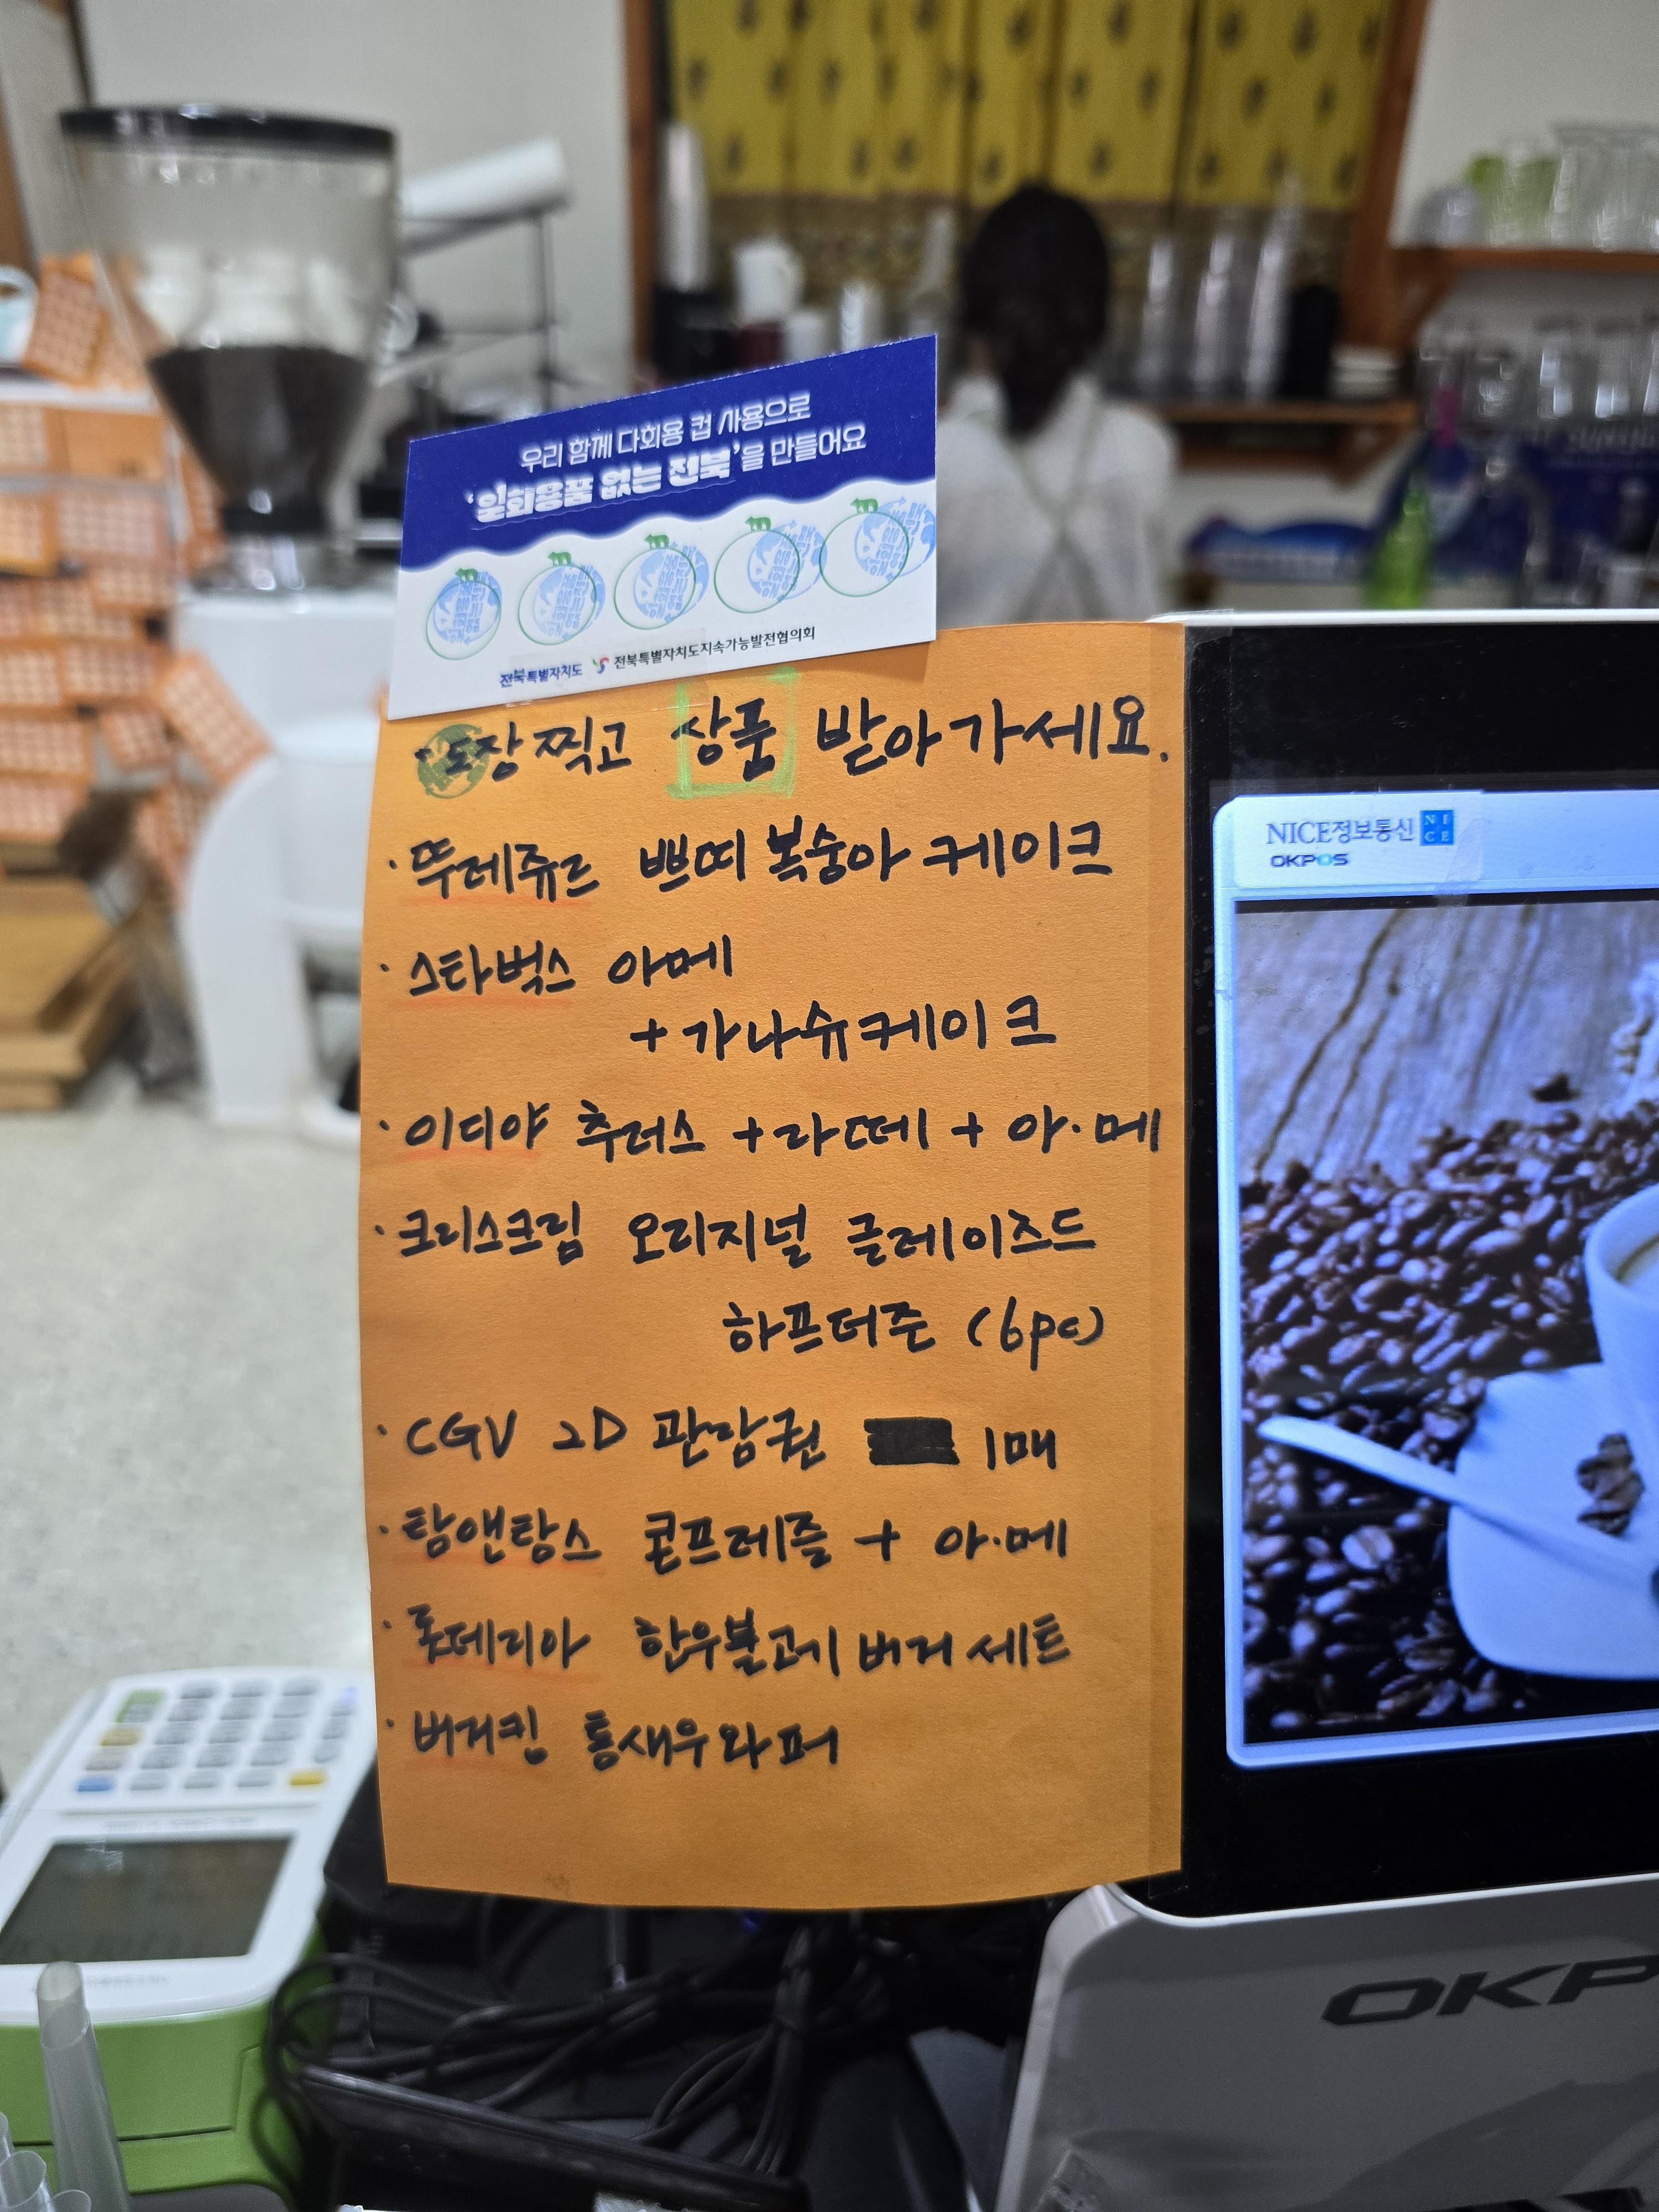 우리 함께 다회용 컵 사용으로
'일회용품 없는 전북'을 만들어요
전북특별자치도 전북특별자치도지속가능발전협의회
·도장 찍고 상품 받아가세요.
·뚜레쥬르 쁘띠 복숭아 케이크
·스타벅스 아메
+ 가나슈케이크
·이디야 츄러스 + 라떼 + 아·메
·크리스크림 오리지널 글레이즈드
하프더즌 (6pc)
·CGV 2D 관람권 1매
·탐앤탐스 콘프레즐 + 아·메
·롯데리아 한우불고기 버거 세트
·버거킹 통새우와퍼
NICE정보통신 NICE
OKPOS
OKP